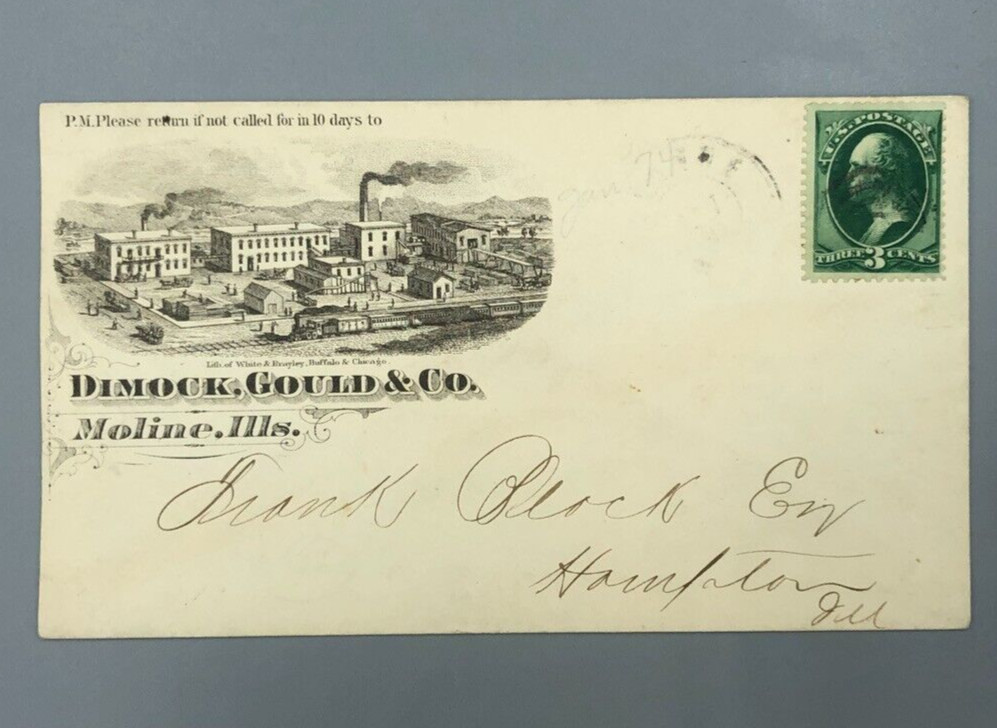 P.M. Please return if not called for in 10 days to
Lith. of White & Brayley, Buffalo & Chicago.
DIMOCK, GOULD & CO.
Moline, Ills.
U.S. POSTAGE
THREE 3 CENTS
Jan 74
Frank Block Esq
Hampton
Ill